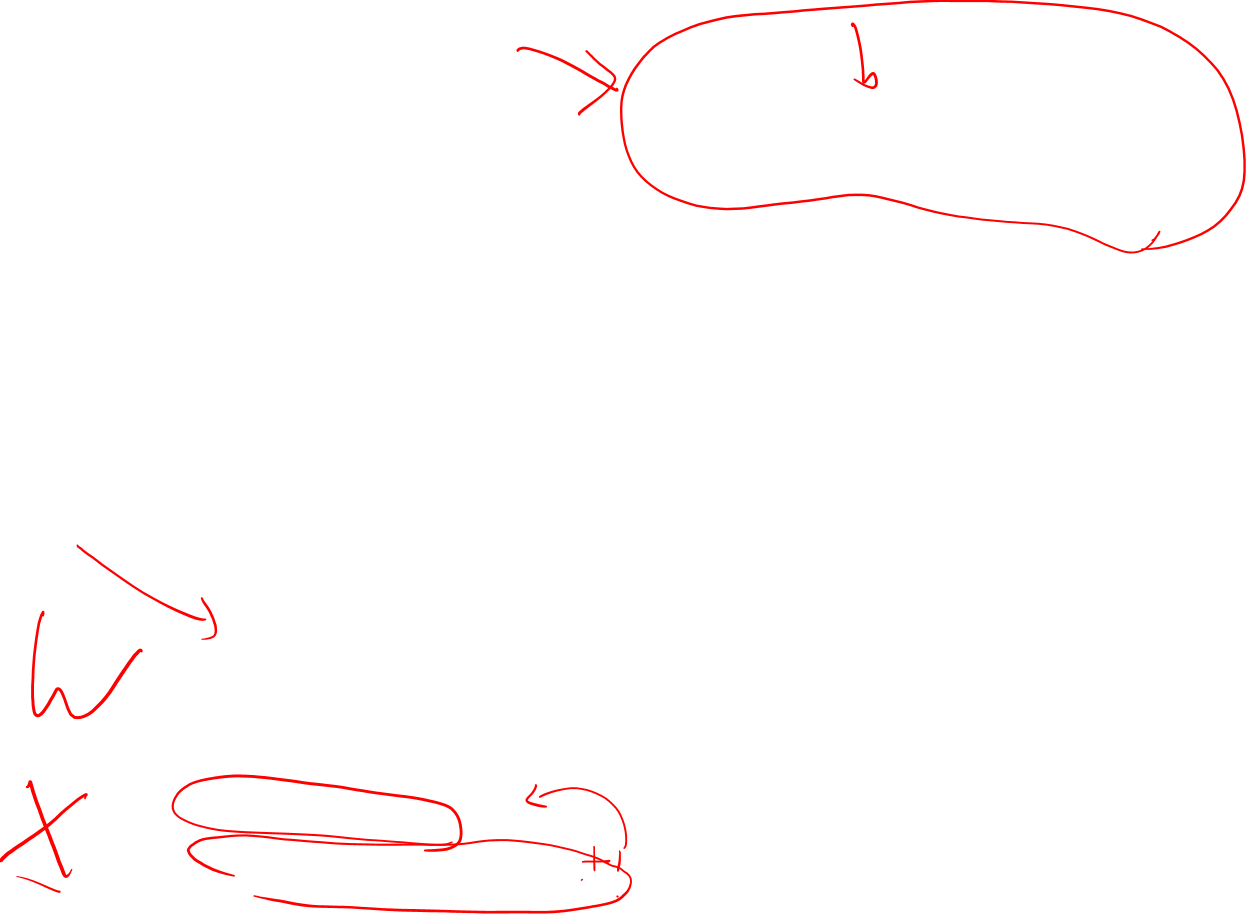 W
X
+1